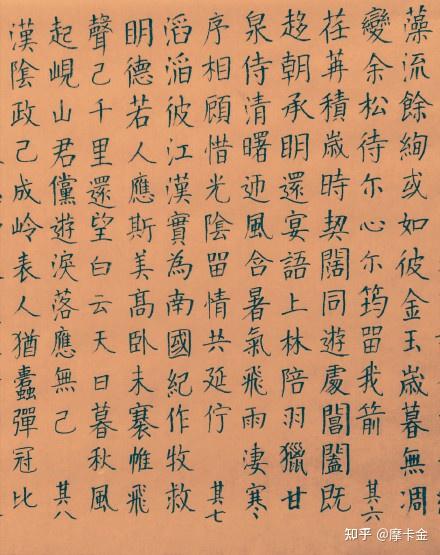 藻流餘絢或如彼金玉歲暮無凋
變余松待尒心尒筠留我箭 其六
荏苒積歲時契闊同遊處閶闔既
趍朝承明還宴語上林陪羽獵甘
泉侍清曙迊風含暑氣飛雨淒寒
序相顧惜光陰留情共延佇 其七
滔滔彼江漢實為南國紀作牧救
明德若人應斯美高臥未褰帷飛
聲己千里還望白云天日暮秋風
起峴山君儻遊淚落應無己 其八
漢陰政己成岭表人猶蠹彈冠比
知乎 @摩卡金